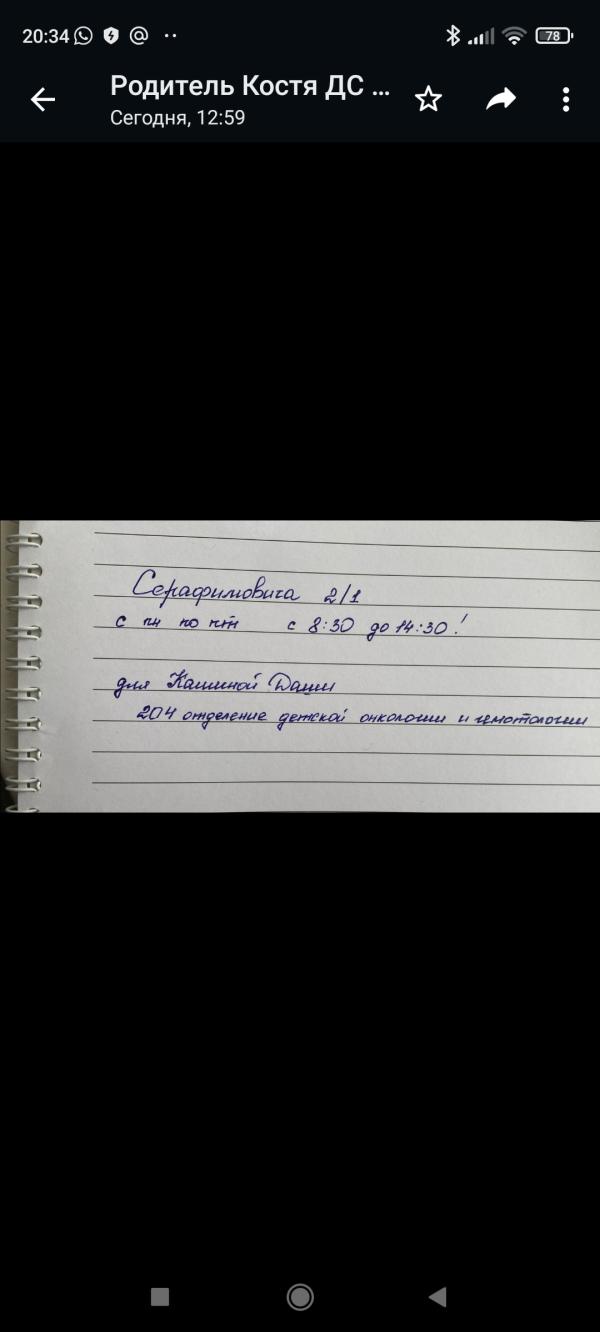 20:34
78
Родитель Костя ДС ...
Сегодня, 12:59
Серафимовича 2/1
с пн по птн с 8:30 до 14:30!
для Кашиной Даши
204 отделение детской онкологии и гемотологии